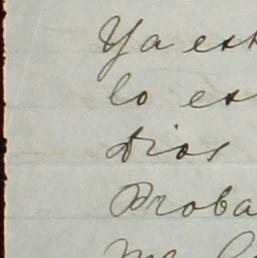 Ya est
lo es
Dios
Proba
me